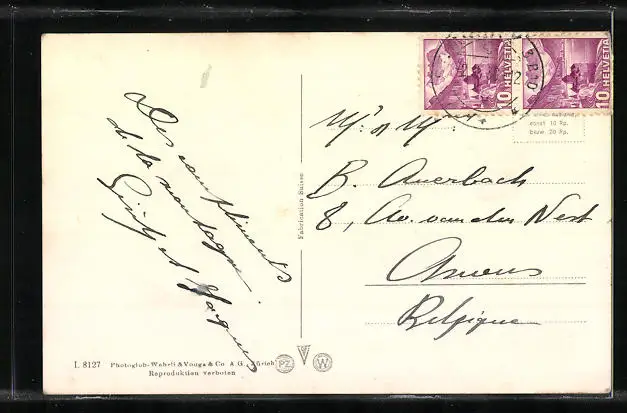 Des compliments
de la montagne.
et Jacques
Mr & Mme
B. Auerbach
8, Av. van den Nest
Anvers
Belgique
HELVETIA 10
HELVETIA 10
sonst 10 Rp.
bzw. 20 Rp.
Fabrication Suisse
L 8127 Photoglob-Wehrli & Vouga & Co. A.G. Zürich PZ W
Reproduktion verboten